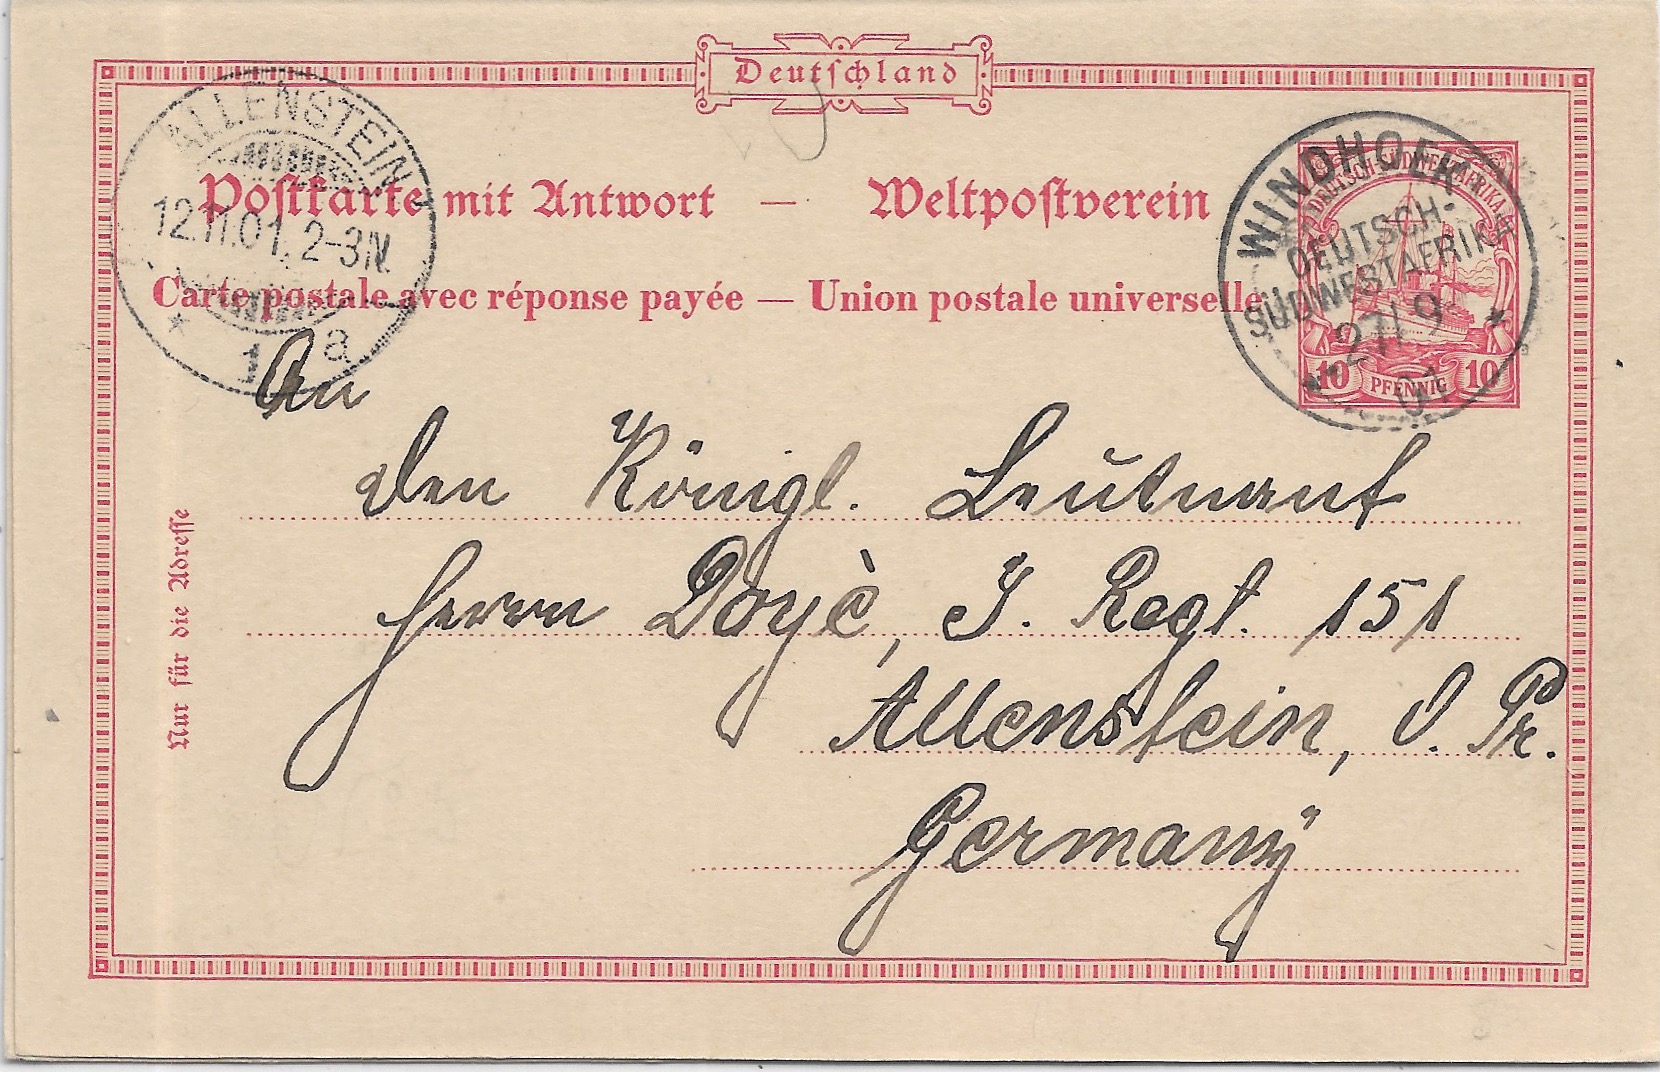 Deutschland
ALLENSTEIN
12.11.01. 2-3N.
1 a
Postkarte mit Antwort — Weltpostverein
Carte postale avec réponse payée — Union postale universelle.
WINDHOEK
DEUTSCH-
SÜDWESTAFRIKA
27/9
01
DEUTSCH-SÜDWESTAFRIKA
10 PFENNIG 10
Nur für die Adresse
An
den Königl. Leutnant
Herrn Doyè, J. Regt. 151
Allenstein, O. Pr.
Germany